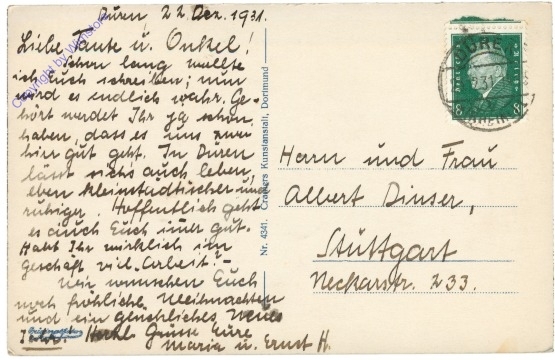 Düren 22 Dez. 1931.
Liebe Tante u. Onkel!
Schon lang wollte
ich Euch schreiben; nun
wird es endlich wahr. Ge-
hört werdet Ihr ja schon
haben, dass es uns
hier gut geht. In Düren
lässt sichs auch leben,
eben kleinstädtischer und
ruhiger. Hoffentlich geht
es auch Euch immer gut.
Habt Ihr wirklich im
Geschäft viel "Arbeit".-
Wir wünschen Euch
noch fröhliche Weihnachten
und ein glückliches Neues
Jahr. Herzl. Grüsse Eure
Maria u. Ernst H.
Copyright by
Nr. 4341. Cramers Kunstanstalt, Dortmund
DÜREN
8 8
Herrn und Frau
Albert Dinser,
Stuttgart
Neckarstr. 233.